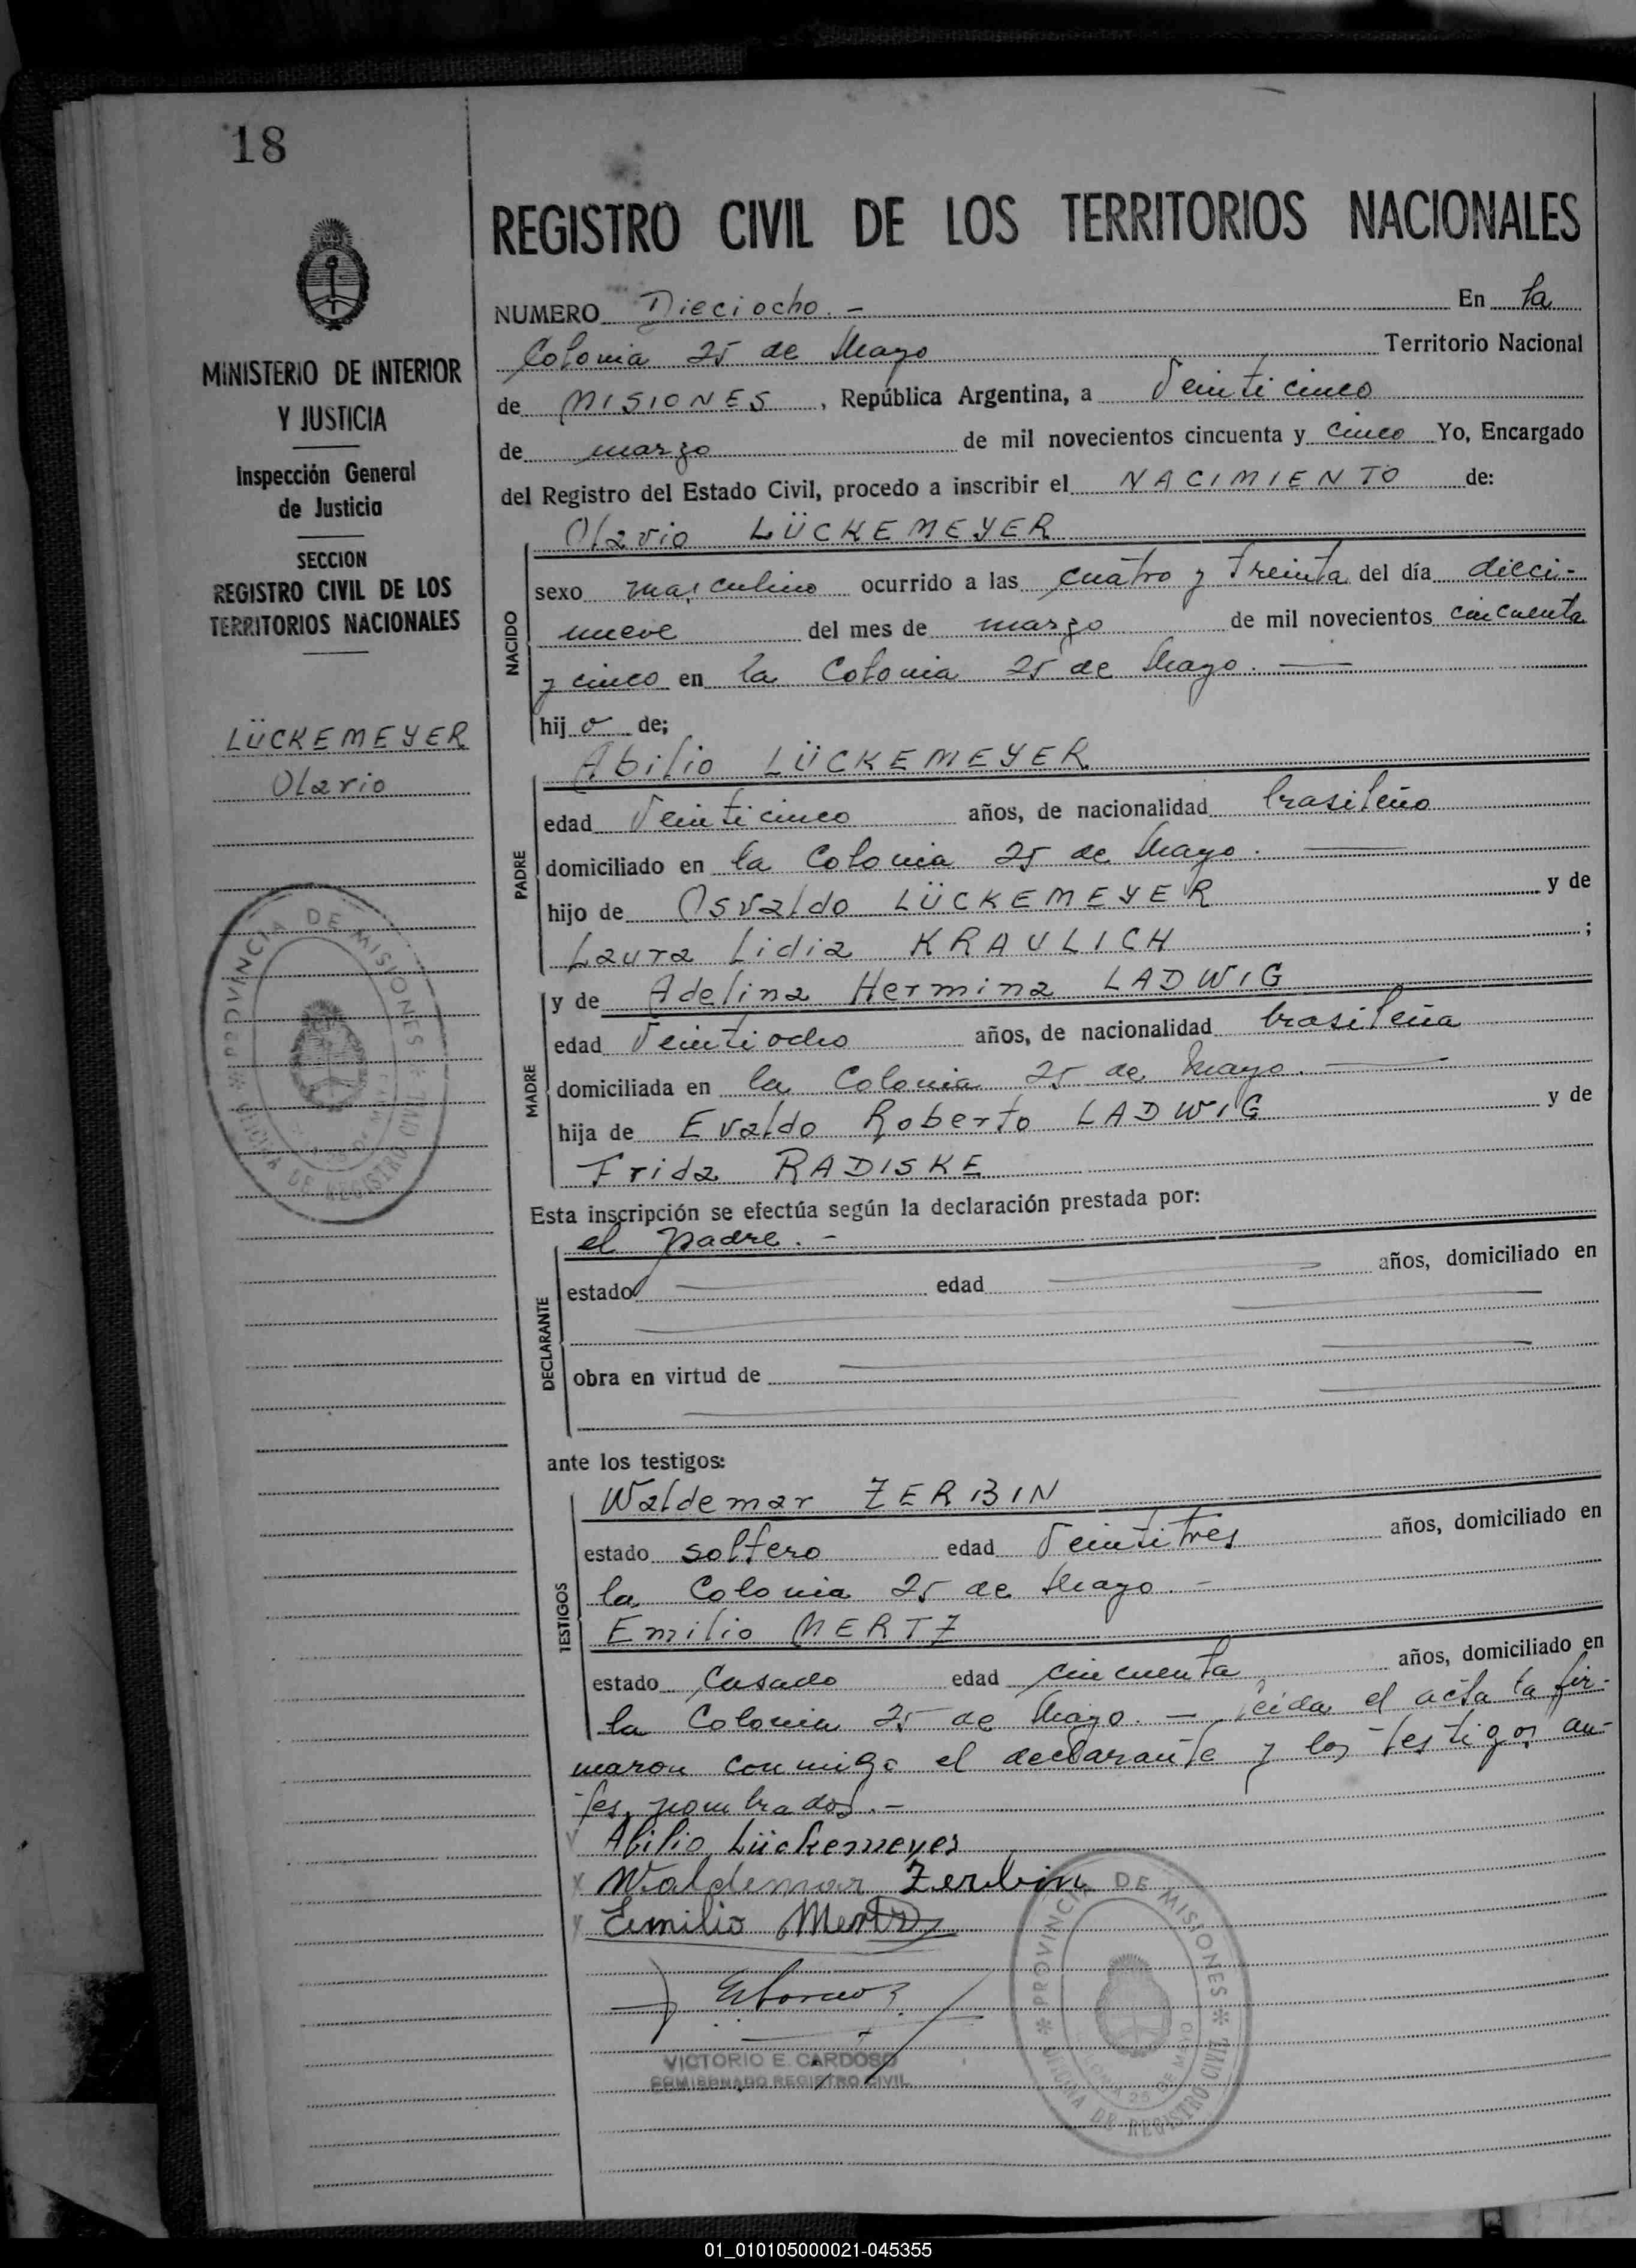 18
MINISTERIO DE INTERIOR
Y JUSTICIA
Inspección General
de Justicia
SECCION
REGISTRO CIVIL DE LOS
TERRITORIOS NACIONALES
LÜCKEMEYER
Olavio
PROVINCIA DE MISIONES
OFICINA DE REGISTRO CIVIL
REGISTRO CIVIL DE LOS TERRITORIOS NACIONALES
NUMERO Dieciocho.- En la
Colonia 25 de Mayo Territorio Nacional
de MISIONES, República Argentina, a Veinticinco
de marzo de mil novecientos cincuenta y cinco Yo, Encargado
del Registro del Estado Civil, procedo a inscribir el NACIMIENTO de:
Olavio LÜCKEMEYER
NACIDO
sexo masculino ocurrido a las cuatro y treinta del día dieci-
nueve del mes de marzo de mil novecientos cincuenta
y cinco en la Colonia 25 de Mayo.
hijo de;
Abilio LÜCKEMEYER
PADRE
edad Veinticinco años, de nacionalidad brasileño
domiciliado en la Colonia 25 de Mayo.
hijo de Osvaldo LÜCKEMEYER y de
Laura Lidia KRAULICH ;
y de Adelina Hermina LADWIG
MADRE
edad Veintiocho años, de nacionalidad brasileña
domiciliada en la Colonia 25 de Mayo.
hija de Evaldo Roberto LADWIG y de
Frida RADISKE
Esta inscripción se efectúa según la declaración prestada por:
el padre.-
DECLARANTE
estado edad años, domiciliado en
obra en virtud de
ante los testigos:
Waldemar ZERBIN
TESTIGOS
estado soltero edad Veintitres años, domiciliado en
la Colonia 25 de Mayo.-
Emilio MERTZ
estado Casado edad cincuenta años, domiciliado en
la Colonia 25 de Mayo.- Leida el acta la fir-
maron conmigo el declarante y los testigos an-
tes nombrados.-
Abilio Lückemeyer
Waldemar Zerbin
Emilio Mertz
VICTORIO E. CARDOSO
COMISIONADO REGISTRO CIVIL
PROVINCIA DE MISIONES
COLONIA 25 DE MAYO
OFICINA DE REGISTRO CIVIL
01_010105000021-045355